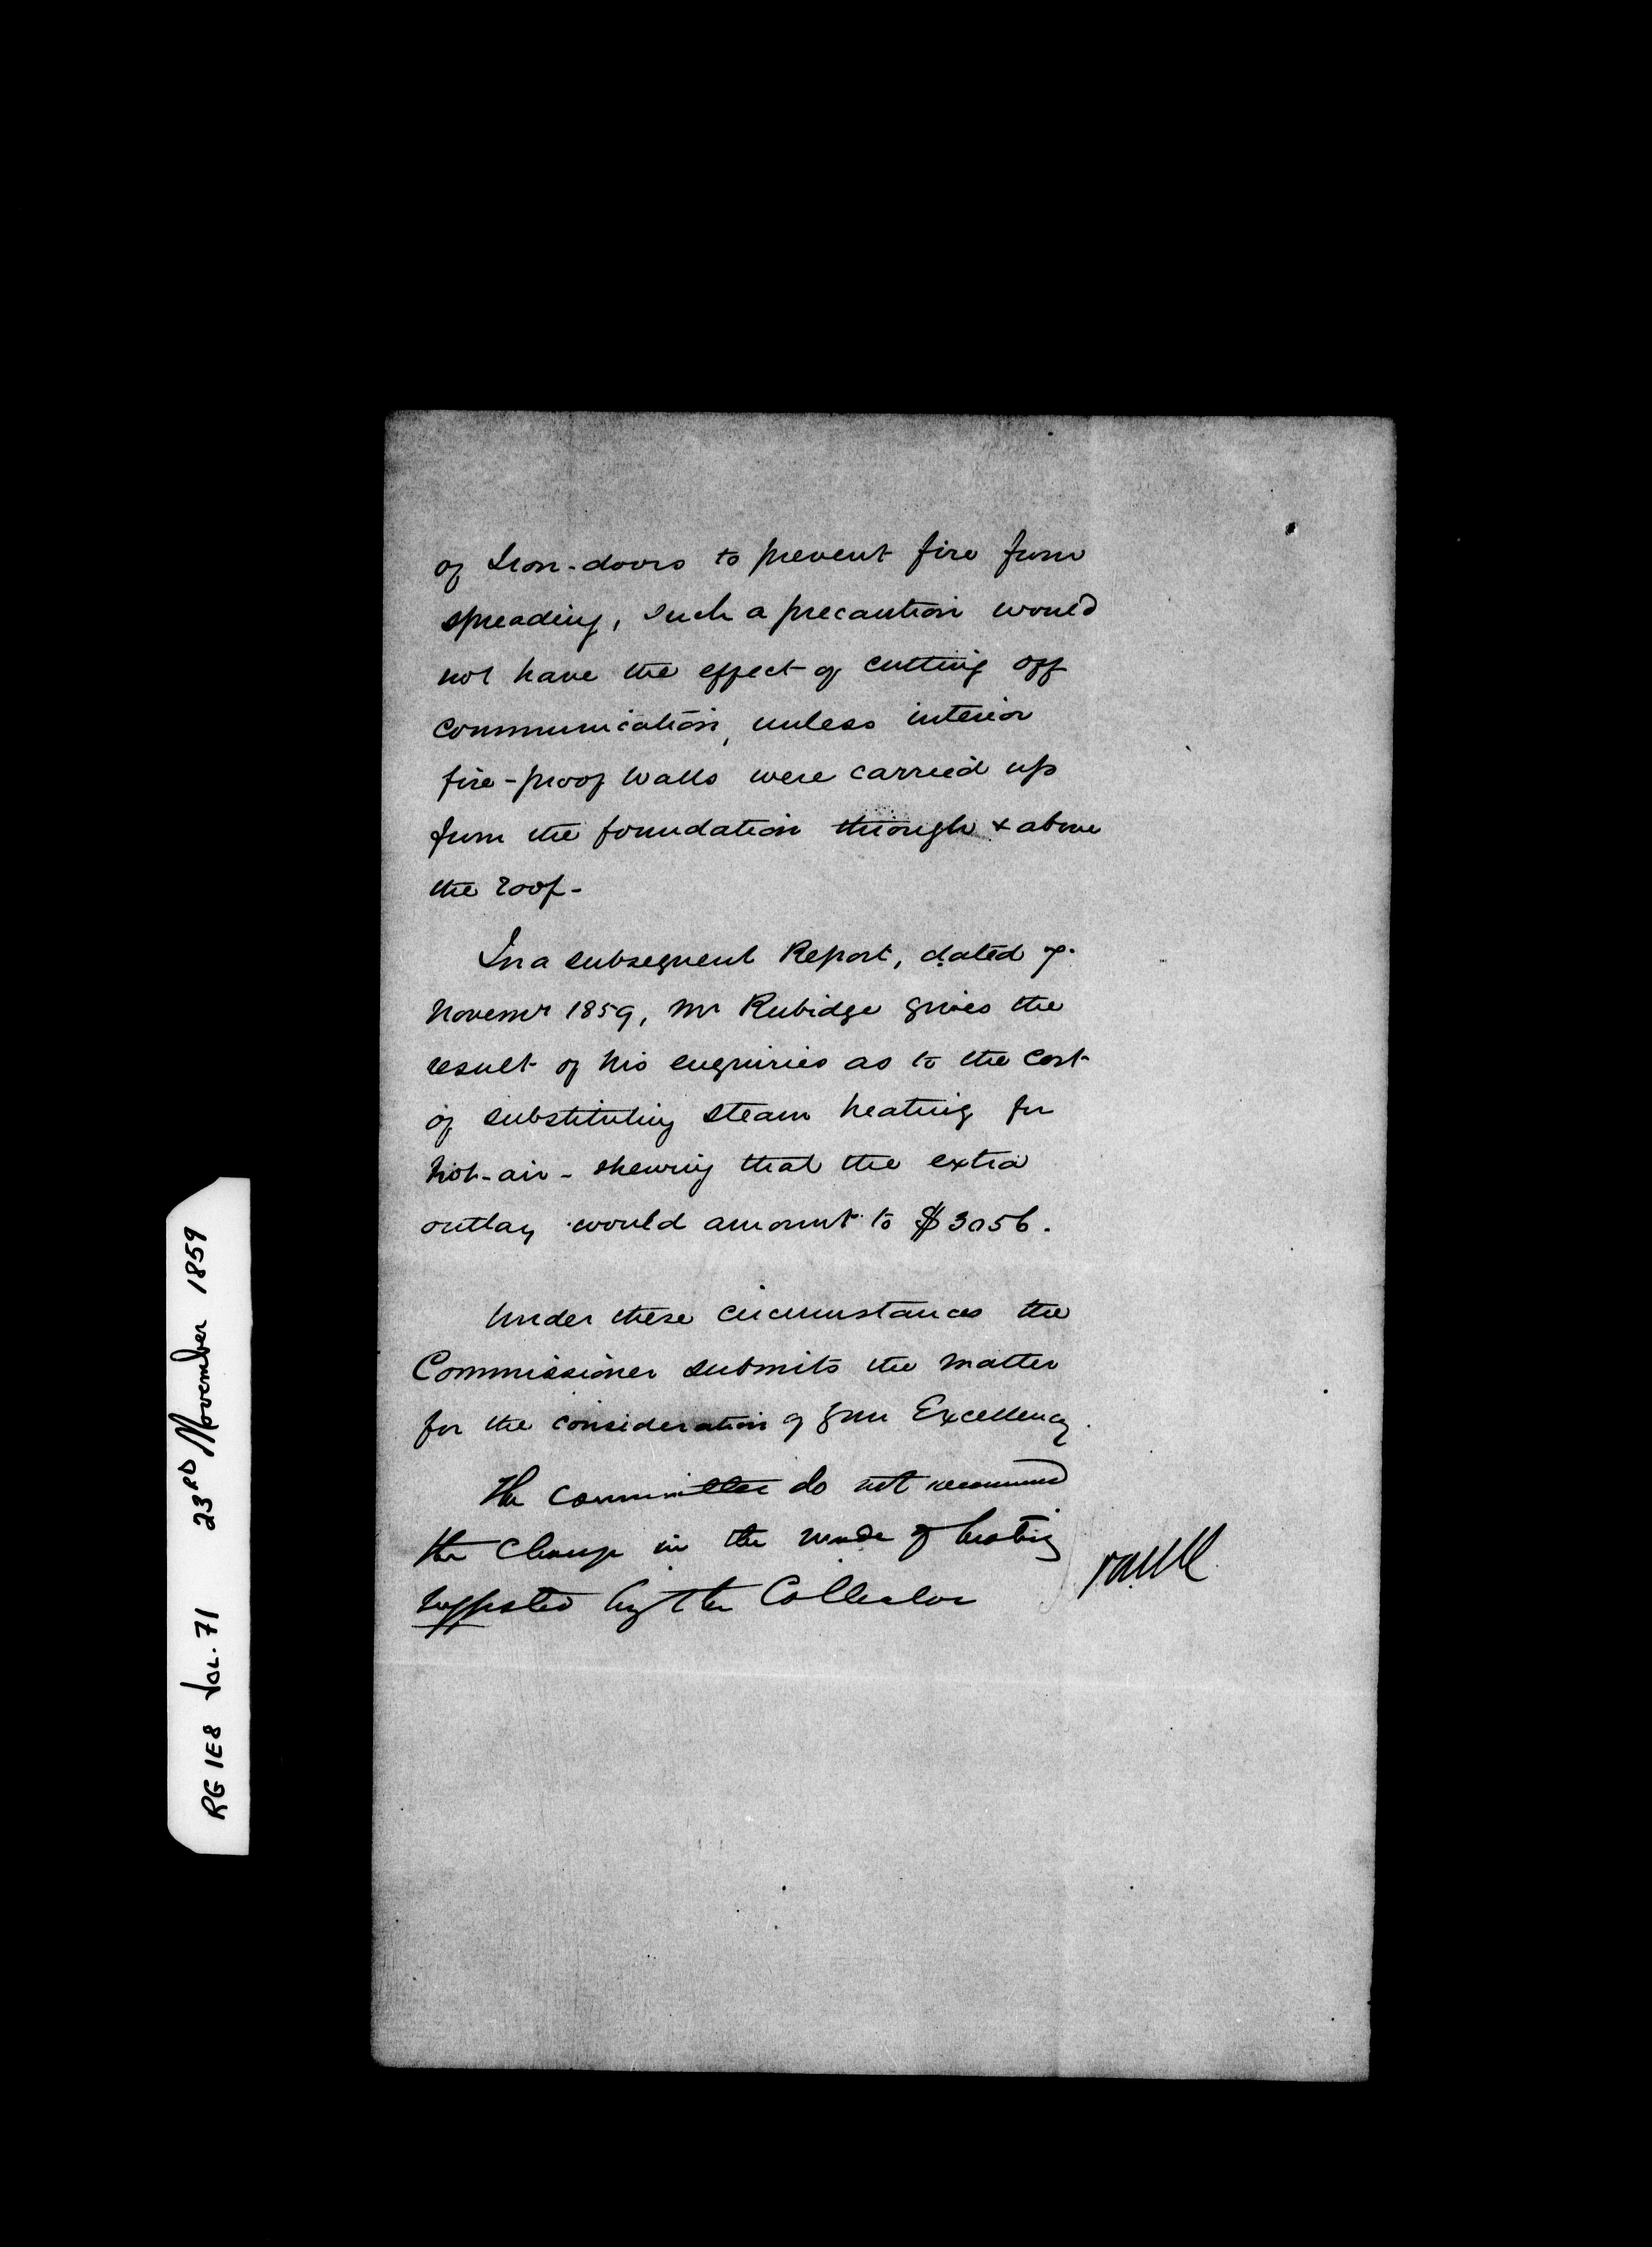 of Iron-doors to prevent fire from
spreading, such a precaution would
not have the effect of cutting off
communication, unless interior
fire-proof walls were carried up
from the foundation through & above
the roof-
In a subsequent Report, dated 7.
Novemr 1859, Mr Rubidge gives the
result of his enquiries as to the cost
of substituting steam heating for
hot-air - shewing that the extra
outlay would amount to $3056.
Under these circumstances the
Commissioner submits the matter
for the consideration of Your Excellency.
The Committee do not recommend
the change in the mode of heating
suggested by the Collector
RG 1E8 Vol. 71 23RD November 1859